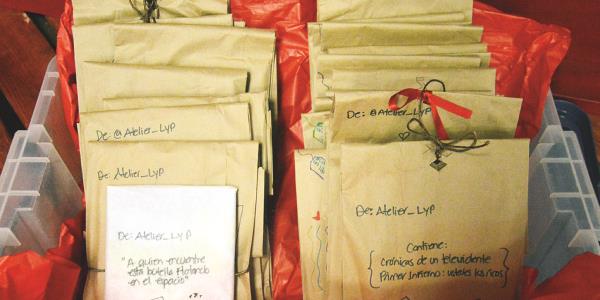 De: @Atelier_LyP
De: Atelier_LyP
De: Atelier_LyP
"A quien encuentre
esta botella flotando
en el espacio"
De: @Atelier_LyP
De: Atelier_LyP
Contiene:
Crónicas de un televidente
Primer Infierno: ustedes los ricos